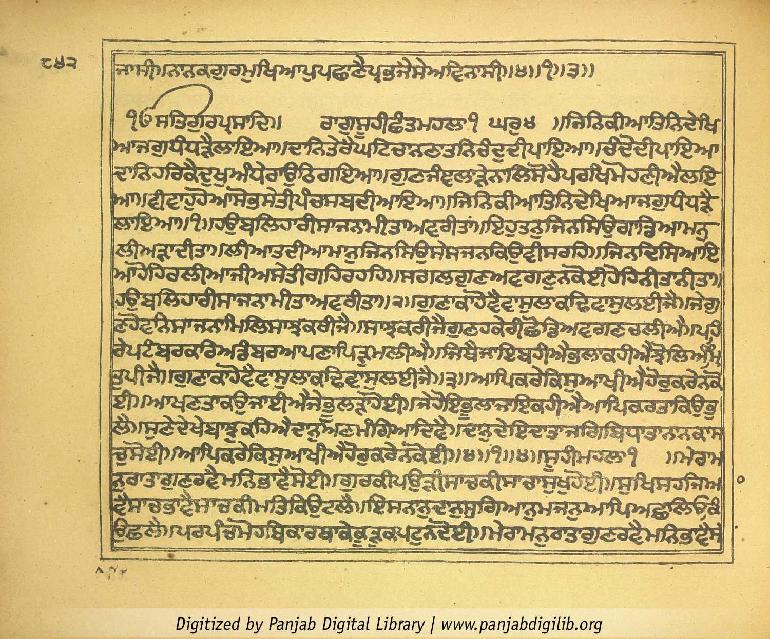 ੮੪੨
ਜਾਸੀ॥ਨਾਨਕਗੁਰਮੁਖਿਆਪੁਪਛਾਣੈਪ੍ਰਭਜੈਸੇਅਵਿਨਾਸੀ॥੪॥੧॥੩॥
ੴਸਤਿਗੁਰਪ੍ਰਸਾਦਿ॥ ਰਾਗੁਸੂਹੀਛੰਤਮਹਲਾ੧ ਘਰੁ੪ ॥ਜਿਨਿਕੀਆਤਿਨਿਦੇਖਿ
ਆਜਗੁਧੰਧੜੈਲਾਇਆ॥ਦਾਨਿਤੇਰੈਘਟਿਚਾਨਣਾਤਨਿਚੰਦੁਦੀਪਾਇਆ॥ਚੰਦੋਦੀਪਾਇਆ
ਦਾਨਿਹਰਿਕੈਦੁਖੁਅੰਧੇਰਾਉਠਿਗਇਆ॥ਗੁਣਜੰਞਲਾੜੇਨਾਲਿਸੋਹੈਪਰਖਿਮੋਹਣੀਐਲਇ
ਆ॥ਵੀਵਾਹੁਹੋਆਸੋਭਸੇਤੀਪੰਚਸਬਦੀਆਇਆ॥ਜਿਨਿਕੀਆਤਿਨਿਦੇਖਿਆਜਗੁਧੰਧੜੈ
ਲਾਇਆ॥੧॥ਹਉਬਲਿਹਾਰੀਸਾਜਨਾਮੀਤਾਅਵਰੀਤਾ॥ਇਹੁਤਨੁਜਿਨਸਿਉਗਾਡਿਆਮਨੁ
ਲੀਅੜਾਦੀਤਾ॥ਲੀਆਤਦੀਆਮਾਨੁਜਿਨਸਿਉਸੇਸਜਨਕਿਉਵੀਸਰਹਿ॥ਜਿਨਦਿਸਿਆਇ
ਆਹੋਹਿਰਲੀਆਜੀਅਸੇਤੀਗਹਿਰਹਹਿ॥ਸਗਲਗੁਣਅਵਗਣੁਨਕੋਈਹੋਹਿਨੀਤਾਨੀਤਾ॥
ਹਉਬਲਿਹਾਰੀਸਾਜਨਾਮੀਤਾਅਵਰੀਤਾ॥੨॥ਗੁਣਕਾਹੋਵੈਵਾਸੁਲਾਕਢਿਵਾਸੁਲਈਜੈ॥ਜੇਗੁ
ਣਹੋਵਨਿਸਾਜਨਾਮਿਲਿਸਾਝਕਰੀਜੈ॥ਸਾਝਕਰੀਜੈਗੁਣਹਕੇਰੀਛੋਡਿਅਵਗਣਚਲੀਐ॥ਪਹਿ
ਰੇਪਟੰਬਰਕਰਿਅਡੰਬਰਆਪਣਾਪਿੜੁਮਲੀਐ॥ਜਿਥੈਜਾਇਬਹੀਐਭਲਾਕਹੀਐਝੋਲਿਅੰਮ੍ਰਿ
ਤੁਪੀਜੈ॥ਗੁਣਾਕਾਹੋਵੈਵਾਸੁਲਾਕਢਿਵਾਸੁਲਈਜੈ॥੩॥ਆਪਿਕਰੇਕਿਸੁਆਖੀਐਹੋਰੁਕਰੇਨਕੋ
ਈ॥ਆਖਣਤਾਕਉਜਾਈਐਜੇਭੂਲੜਾਹੋਈ॥ਜੇਹੋਇਭੂਲਾਜਾਇਕਹੀਐਆਪਿਕਰਤਾਕਿਉਭੁ
ਲੈ॥ਸੁਣੇਦੇਖੇਬਾਝੁਕਹਿਐਦਾਨੁਅਣਮੰਗਿਆਦਿਵੈ॥ਦਾਨੁਦੇਇਦਾਤਾਜਗਿਬਿਧਾਤਾਨਾਨਕਾਸ
ਚੁਸੋਈ॥ਆਪਿਕਰੇਕਿਸੁਆਖੀਐਹੋਰੁਕਰੇਨਕੋਈ॥੪॥੧॥੪॥ਸੂਹੀਮਹਲਾ੧ ॥ਮੇਰਾਮ
ਨੁਰਾਤਾਗੁਣਰਵੈਮਨਿਭਾਵੈਸੋਈ॥ਗੁਰਕੀਪਉੜੀਸਾਚਕੀਸਾਚਾਸੁਖੁਹੋਈ॥ਸੁਖਿਸਹਜਿਆ
ਵੈਸਾਚਭਾਵੈਸਾਚਕੀਮਤਿਕਿਉਟਲੈ॥ਇਸਨਾਨੁਦਾਨੁਸੁਗਿਆਨੁਮਜਨੁਆਪਿਅਛਲਿਓਕਿ
ਉਛਲੈ॥ਪਰਪੰਚਮੋਹਬਿਕਾਰਥਾਕੇਕੂੜੁਕਪਟੁਨਦੋਈ॥ਮੇਰਾਮਨੁਰਾਤਾਗੁਣਰਵੈਮਨਿਭਾਵੈਸੋ
Digitized by Panjab Digital Library | www.panjabdigilib.org